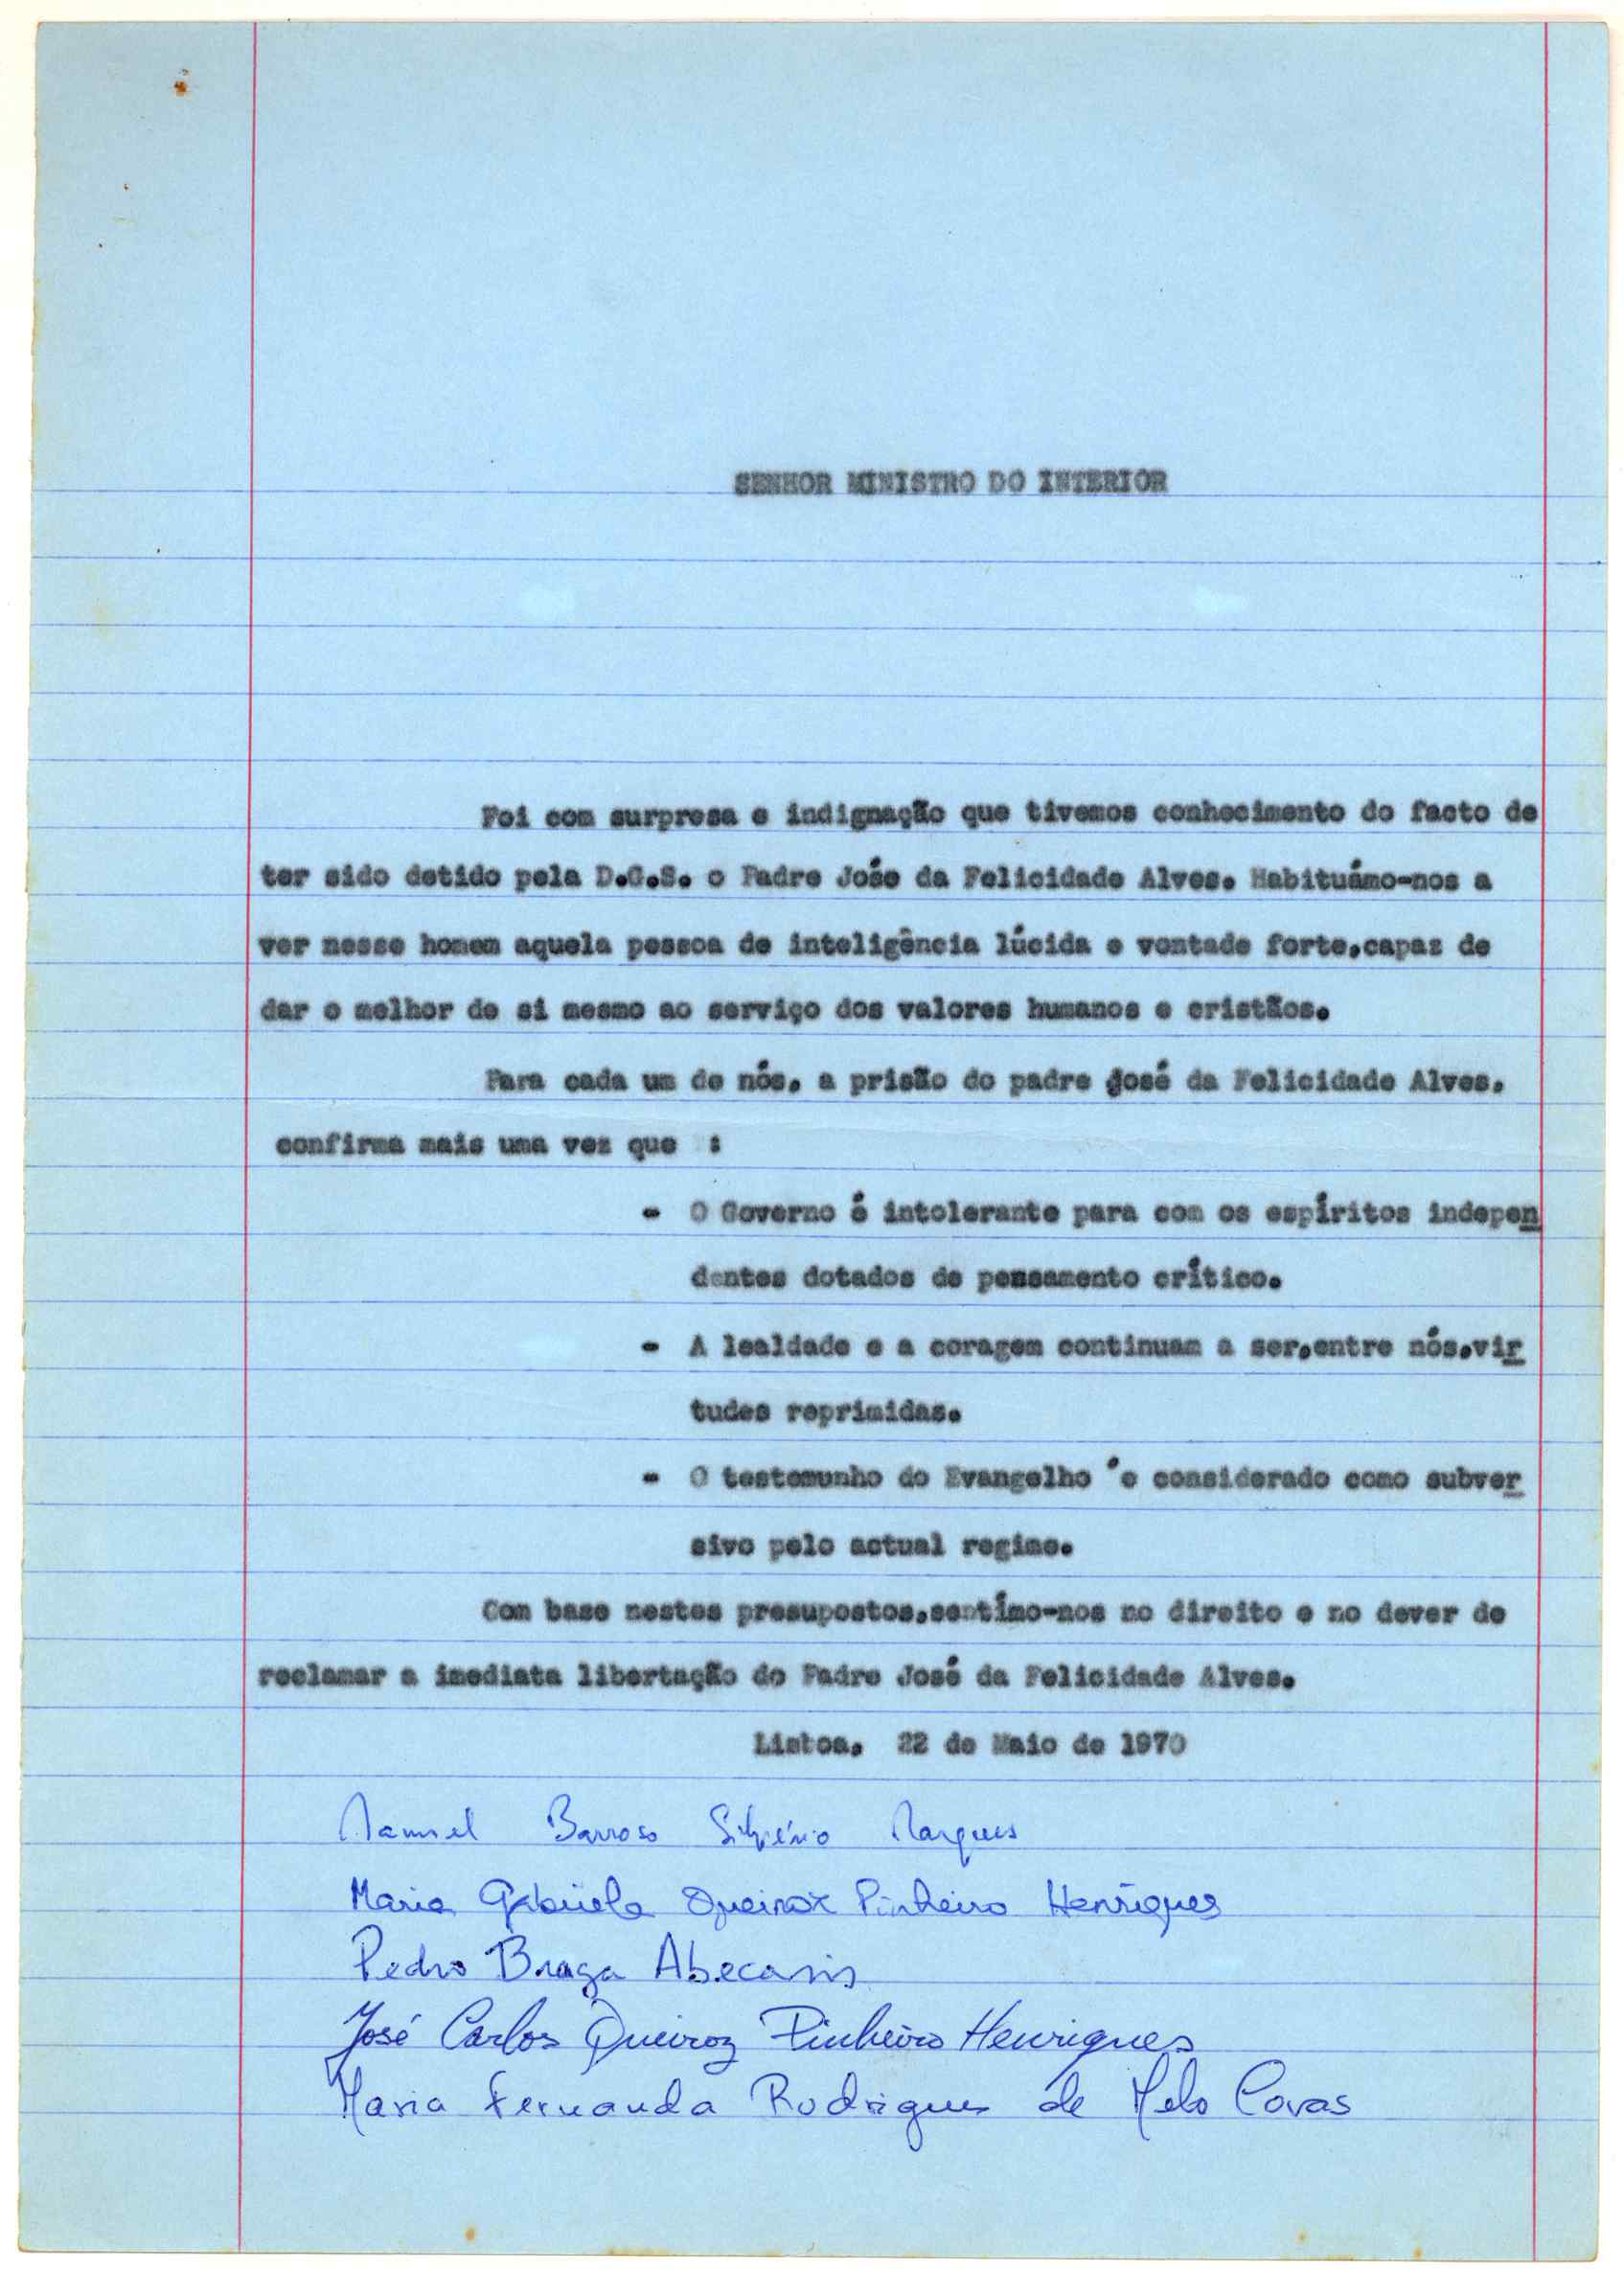 SENHOR MINISTRO DO INTERIOR
Foi com surpresa e indignação que tivemos conhecimento do facto de
ter sido detido pela D.G.S. o Padre João da Felicidade Alves. Habituámo-nos a
ver nesse homem aquela pessoa de inteligência lúcida e vontade forte,capaz de
dar o melhor de si mesmo ao serviço dos valores humanos e cristãos.
Para cada um de nós, a prisão do padre José da Felicidade Alves,
confirma mais uma vez que :
- O Governo é intolerante para com os espíritos indepen
dentes dotados de pensamento crítico.
- A lealdade e a coragem continuam a ser,entre nós,vir
tudes reprimidas.
- O testemunho do Evangelho ´e considerado como subver
sivo pelo actual regime.
Com base nestes presupostos,sentímo-nos no direito e no dever de
reclamar a imediata libertação do Padre José da Felicidade Alves.
Lisboa, 22 de Maio de 1970
Manuel Barroso Silvério Marques
Maria Gabriela Queiroz Pinheiro Henriques
Pedro Braga Abecasis
José Carlos Queiroz Pinheiro Henriques
Maria Fernanda Rodrigues de Melo Covas